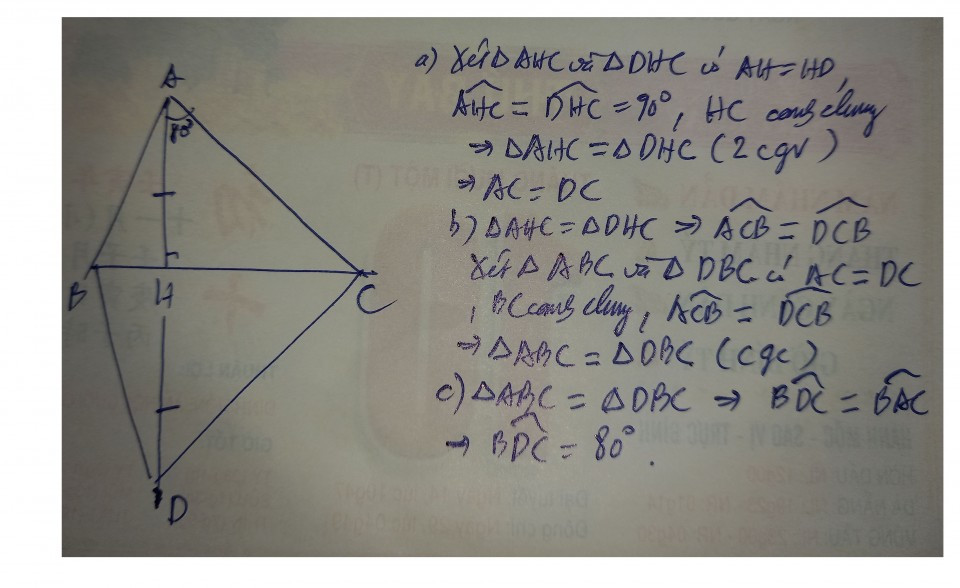 A
80°
B
H
C
D
a) Xét ΔAHC và ΔDHC có AH = HD,
AHC = DHC = 90°, HC cạnh chung
⇒ ΔAHC = ΔDHC (2 cgv)
⇒ AC = DC
b) ΔAHC = ΔDHC ⇒ ACB = DCB
Xét Δ ABC và Δ DBC có AC = DC
, BC cạnh chung, ACB = DCB
⇒ ΔABC = ΔDBC (cgc)
c) ΔABC = ΔDBC ⇒ BDC = BAC
⇒ BDC = 80°.